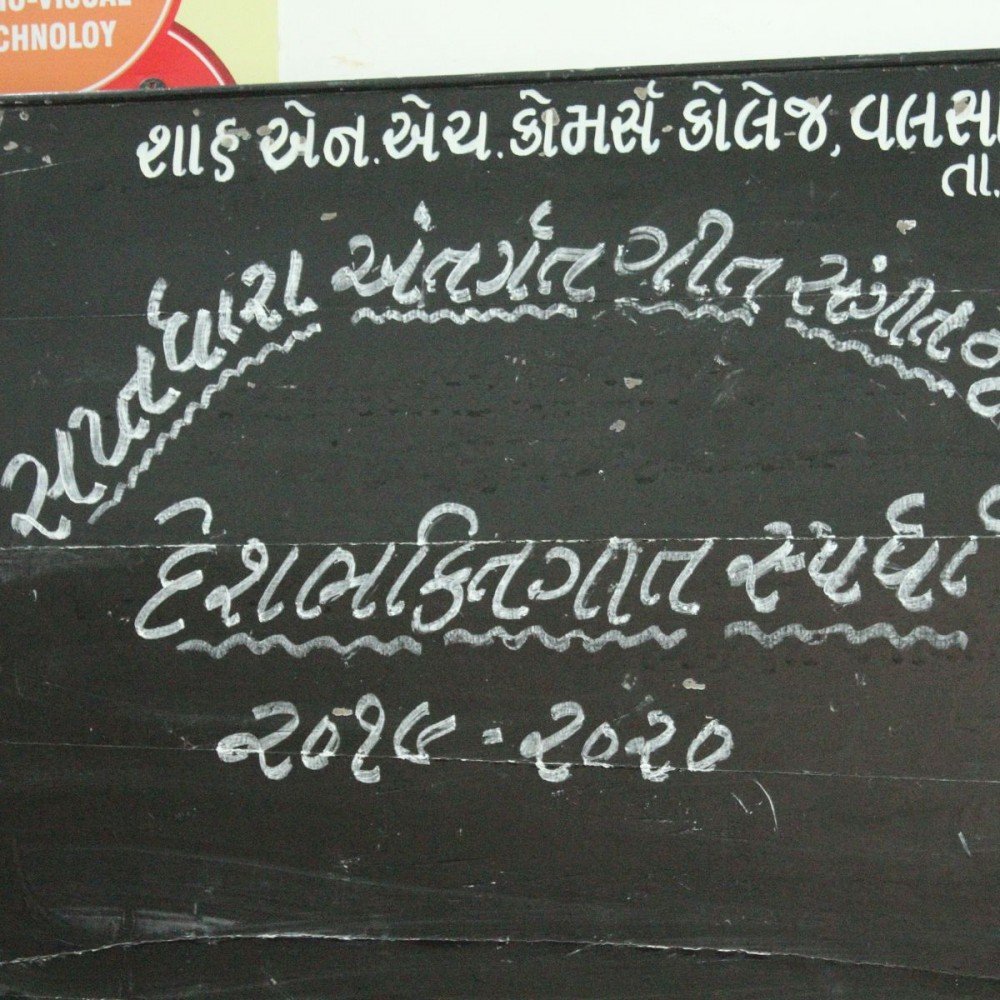 CHNOLOY
શાહ એન.એચ.કોમર્સ કોલેજ, વલસા
તા.
સપ્તધારા અંતર્ગત ગીત સંગીત
દેશભક્તિગીત સ્પર્ધા
૨૦૧૯-૨૦૨૦